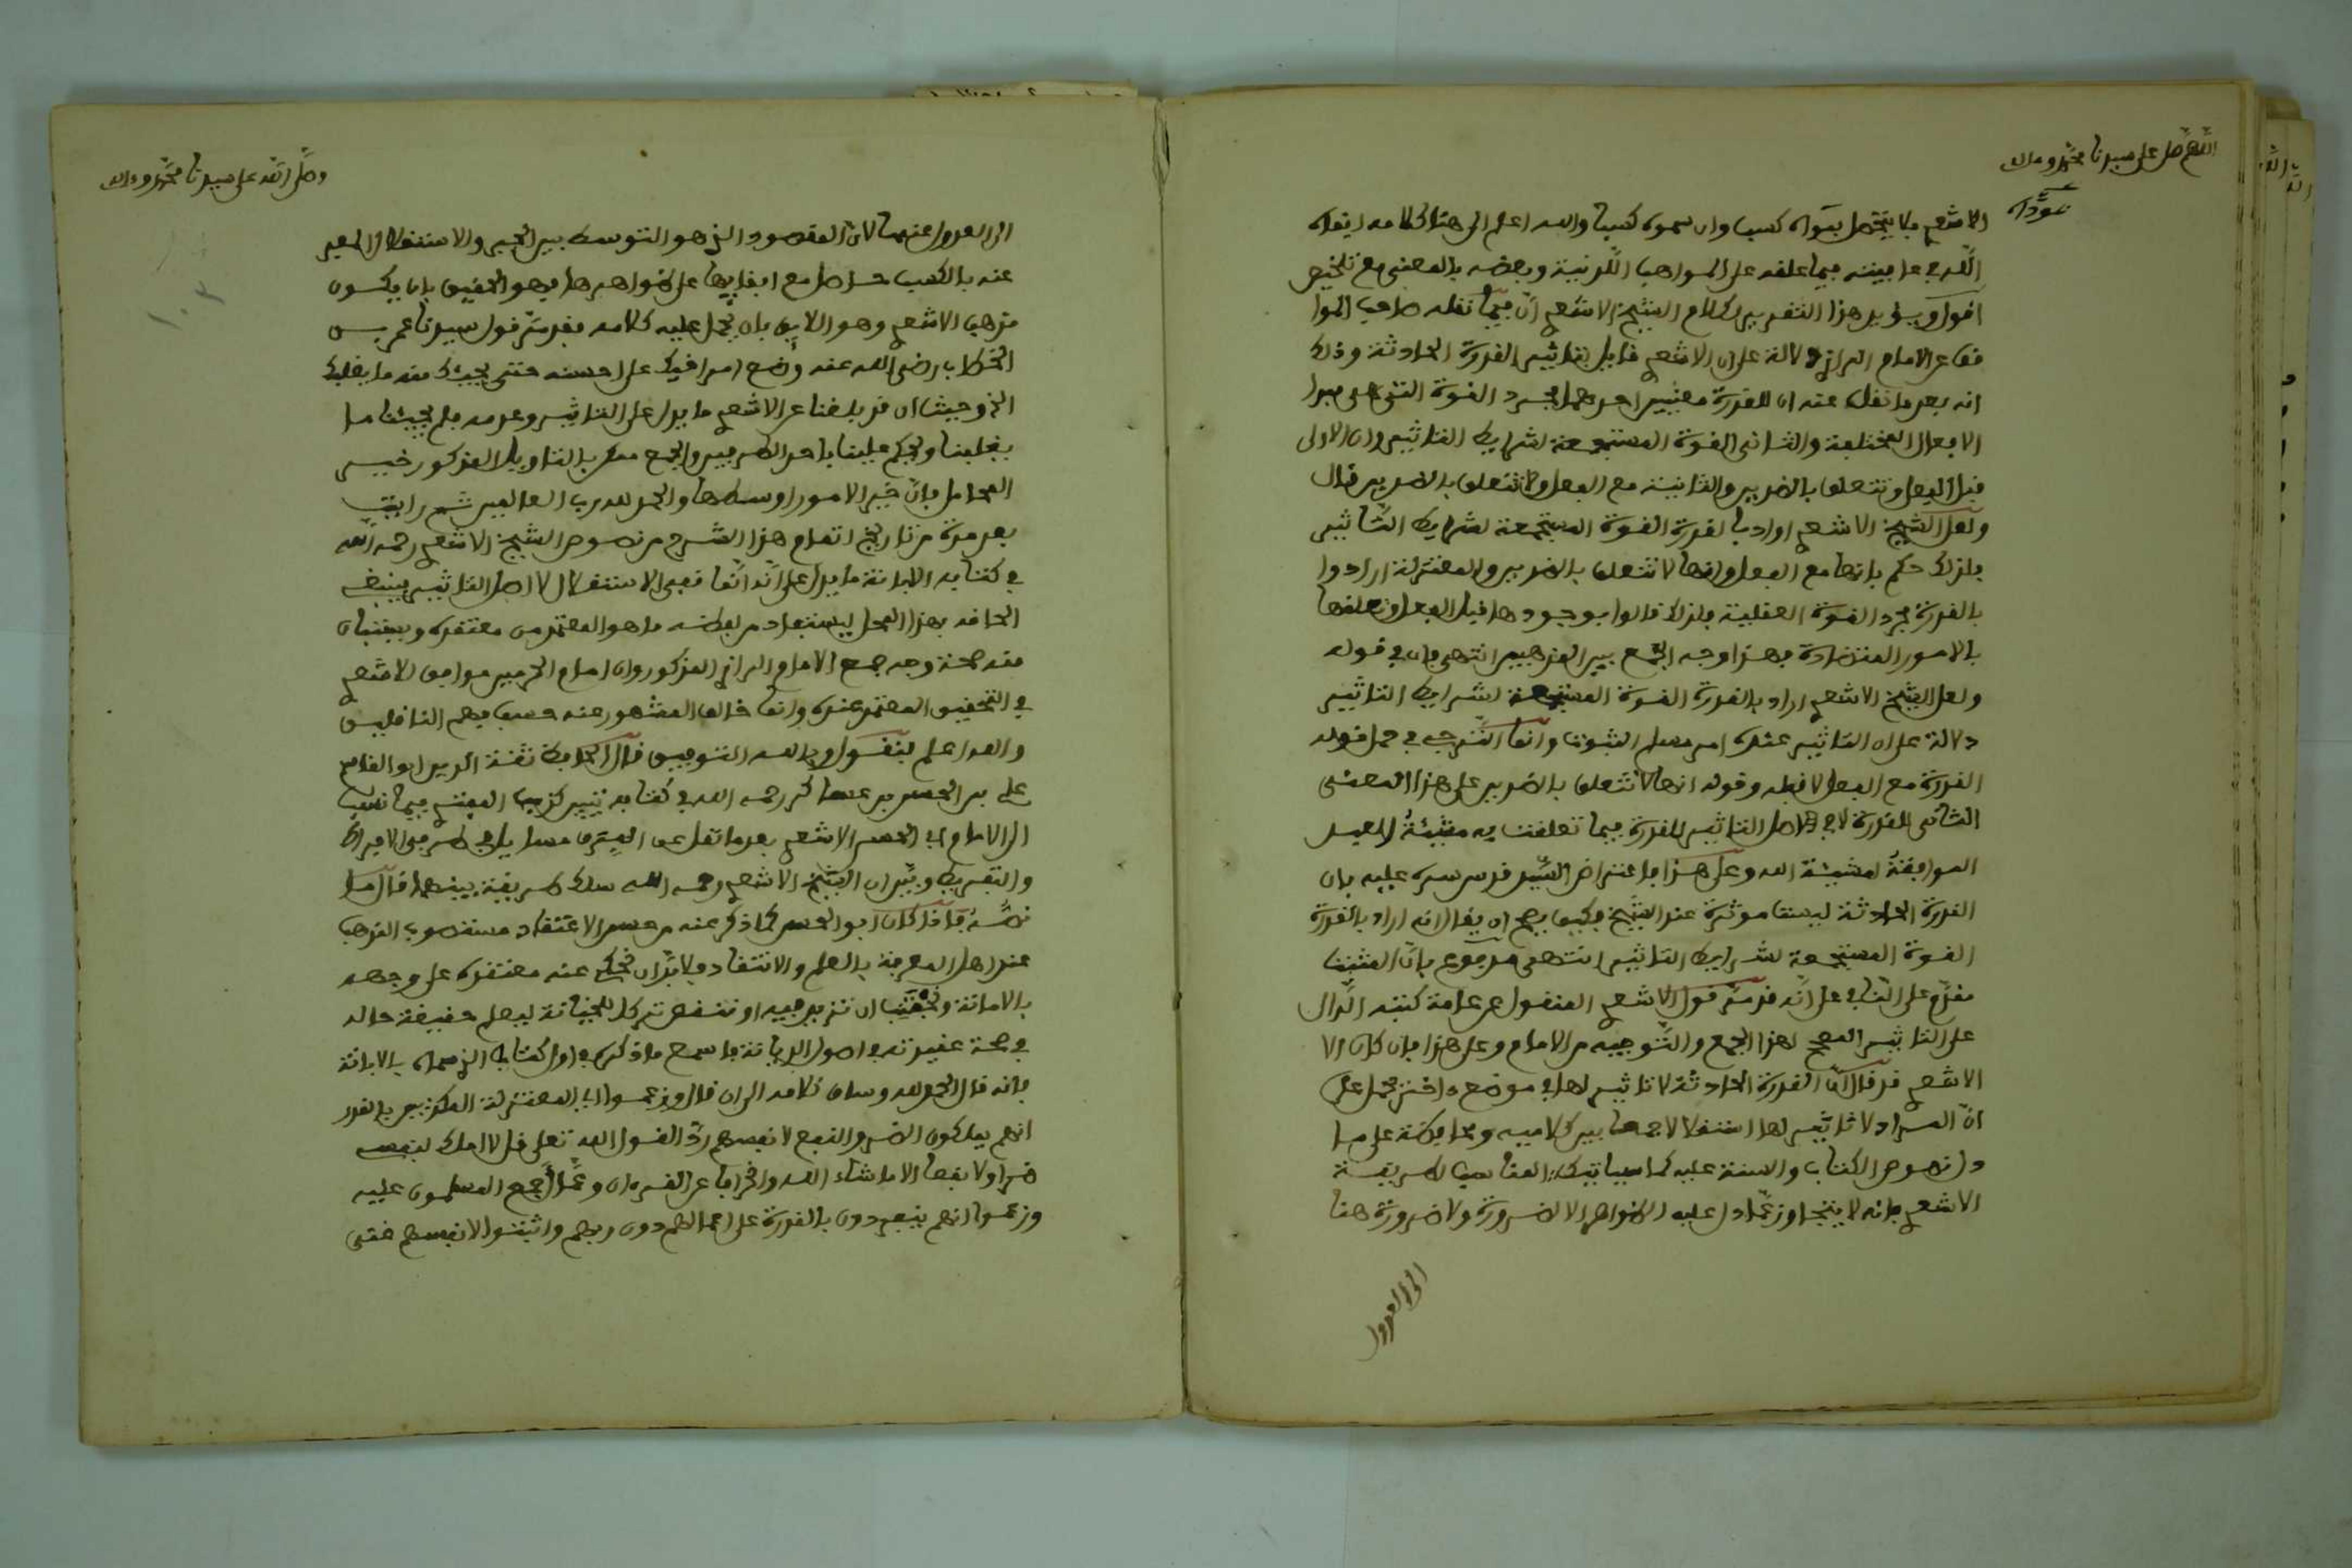 اللهم صل على سيدنا محمد وءاله
الاشعري فلا يتحصل بسواه كسب وان سموه كسبا والله اعلم الى هنا كلامه ايقاه
الله في ما بينته فيما علقه على المواهب اللدنية وبعضه بالمعنى مع تلخيص
اقول ويؤيد هذا التقرير لكلام الشيخ الاشعري ان فيما نقله صاحب الموا
قف عن الامام الرازي دلالة على ان الاشعري قايل بتاثير القدرة الحادثة وذلك
انه بعد ما نقل عنه ان للقدرة معنيين احدهما مجرد القوة التي هي مبدا
الافعال المختلفة والثاني القوة المستجمعة لشرايط التاثير وان الاولى
قبل الفعل وتتعلق بالضدين والثانية مع الفعل ولا تتعلق بالضدين قال
ولعل الشيخ الاشعري اراد بالقدرة القوة المستجمعة لشرايط التاثير
فلذلك حكم بانها مع الفعل وانها لا تتعلق بالضدين والمعتزلة ارادوا
بالقدرة مجرد القوة العضلية فلذلك قالوا بوجودها قبل الفعل وتعلقها
بالامور المتضادة فهذا وجه الجمع بين المذهبين انتهى فان في قوله
ولعل الشيخ الاشعري اراد بالقدرة القوة المستجمعة لشرايط التاثير
دلالة على ان التاثير عنده امر مسلم الثبوت وانما الترجي في حمل قوله
القدرة مع الفعل لا قبله وقوله انها لا تتعلق بالضدين على هذا المعنى
الثاني للقدرة لا في اصل التاثير للقدرة فيما تعلقت به مشيئة العبد
الموافقة لمشيئة الله وعلى هذا فاعتراض السيد قدس سره عليه بان
القدرة الحادثة ليست موثرة عند الشيخ فكيف يصح ان يقال انه اراد بالقدرة
القوة المستجمعة لشرايط التاثير انتهى مدفوع بان المثبت
مقدم على النافي على انه قد مر قول الاشعري المنقول عن عامة كتبه الدال
على التاثير المصحح لهذا الجمع والتوجيه من الامام وعلى هذا فان كان الا
الاشعري قد قال ان القدرة الحادثة لا تاثير لها في موضع ءاخر يحمل على
ان المراد لا تاثير لها استقلالا جمعا بين كلاميه ومحافظة على ما
دل نصوص الكتاب والسنة عليه كما سياتيك المناسب لطريقة
الاشعري فانه لا يتجاوز عما دل عليه الظواهر الا لضرورة ولا ضرورة هنا
الى العدول
وصلى الله على سيدنا محمد وءاله
الى العدول عنها لان المقصود الذي هو التوسط بين الجبر والاستقلال المعبر
عنه بالكسب حاصل مع ابقايها على ظواهرها فهو الحقيق بان يكون
مذهب الاشعري وهو اللايق بان يحمل عليه كلامه فقد مر قول سيدنا عمر بن
الخطاب رضي الله عنه وضع امر اخيك على احسنه حتى يجيئك منه ما يغلبك
الخ وحيث ان قد بلغنا عن الاشعري ما يدل على التاثير وعدمه فلم يجيئنا ما
يغلبنا ويحكم علينا باحد الطرفين والجمع ممكن بالتاويل المذكور خير
المحامل فان خير الامور اوسطها والحمد لله رب العالمين ثم رايت
بعد مدة من تاريخ اتمام هذا الشرح من نصوص الشيخ الاشعري رحمه الله
في كتابه الابانة ما يدل على انه انما نفى الاستقلال لا اصل التاثير فينبغي
الحاقه بهذا المحل ليستفاد من لفظه ما هو المعتمد من معتقده ويتبين
منه صحة وجه جمع الامام الرازي المذكور وان امام الحرمين موافق للاشعري
في التحقيق المعتمد عنده وانما خالف المشهور عنه حسب فهم الناقلين
والله اعلم فنقول وبالله التوفيق قال الحافظ ثقة الدين ابو القاسم
علي بن الحسن بن عساكر رحمه الله في كتابه تبيين كذب المفتري فيما نسب
الى الامام ابي الحسن الاشعري بعد ما نقل عن الفرق مسايل في طرفي الافراط
والتفريط وبين ان الشيخ الاشعري رحمه الله سلك طريقة بينهما قال ما
نصه فاذا كان ابو الحسن كما ذكر عنه من حسن الاعتقاد مستصوب المذهب
عند اهل المعرفة بالعلم والانتقاد ولا بد ان نحكي عنه معتقده على وجهه
بالامانة ونجتنب ان نزيد فيه او ننقص منه تركا للخيانة ليعلم حقيقة حاله
في صحة عقيدته في اصول الديانة فاسمع ما ذكره في اول كتابه الذي سماه بالابانة
فانه قال الحمد لله وساق كلامه الى ان قال وزعموا اي المعتزلة المكذبين بالقدر
انهم يملكون الضر والنفع لانفسهم ردا لقول الله تعلى قل لا املك لنفسي
ضرا ولا نفعا الا ما شاء الله وانحرافا عن القرءان وعما اجمع المسلمون عليه
وزعموا انهم ينفردون بالقدرة على اعمالهم دون ربهم واثبتوا لانفسهم غنى